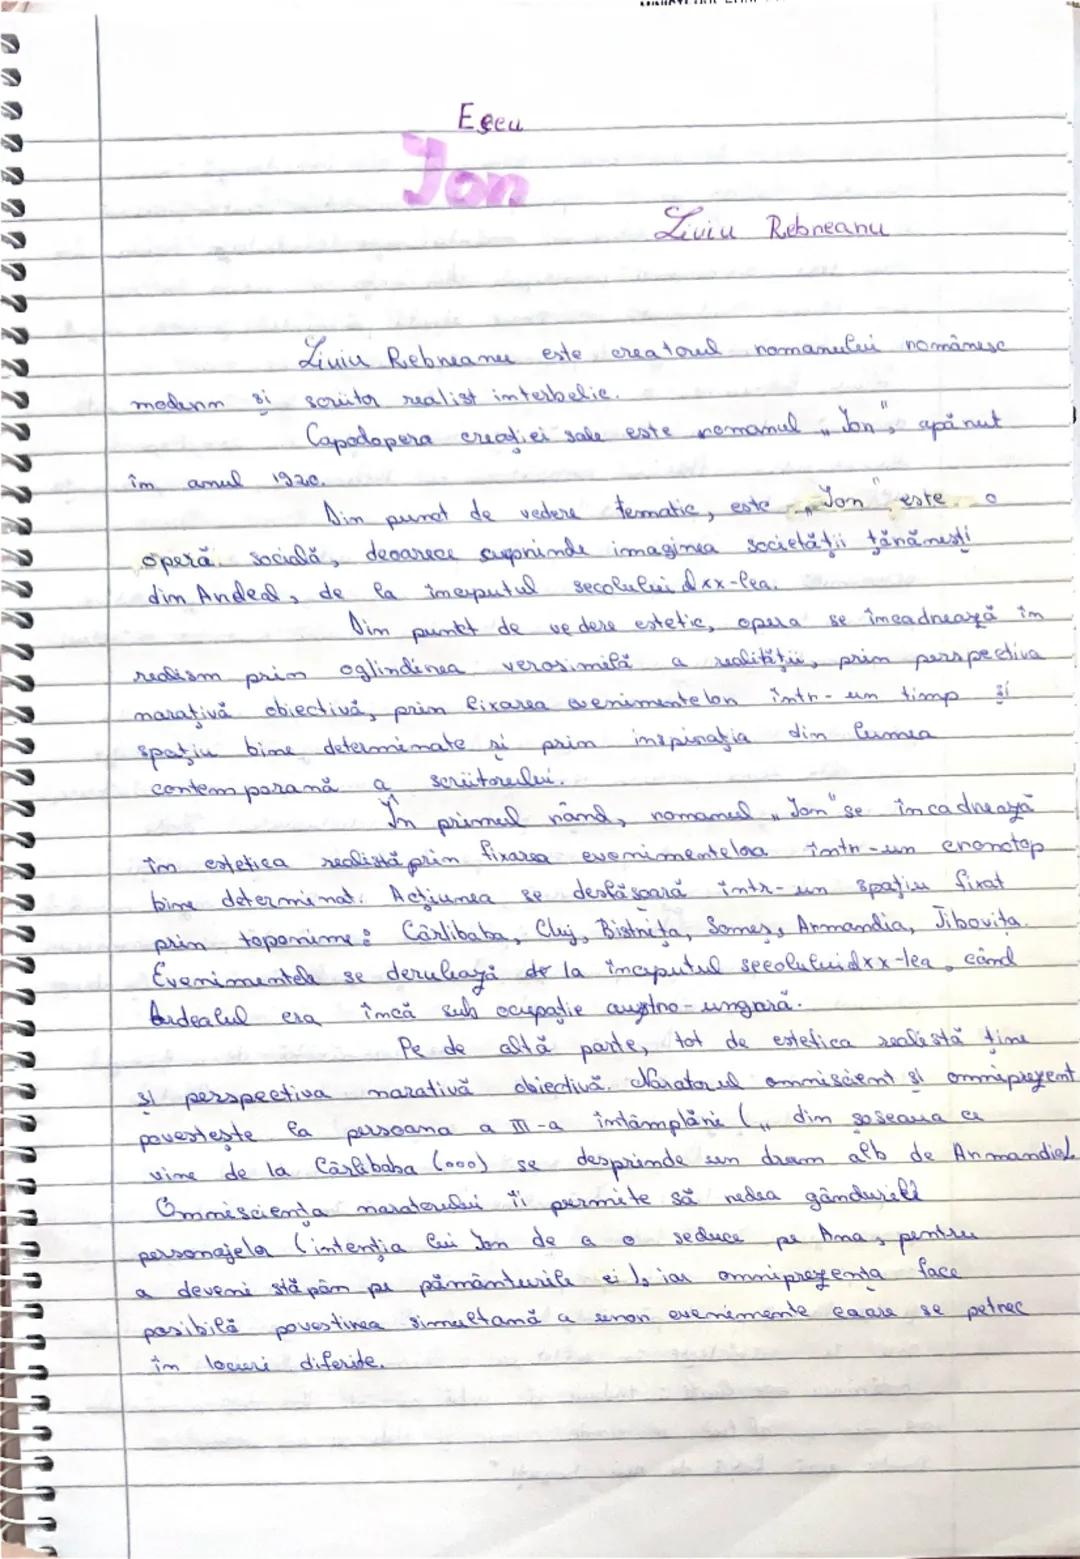 Eseu
Ion
Liviu Rebreanu
Liviu Rebreanu este creatorul romanului românesc
modern și scriitor realist interbelic.
Capodopera creației sale este romanul „Ion", apărut
în anul 1920.
Din punct de vedere tematic, este „Ion" este o
operă socială, deoarece surprinde imaginea societății țărănești
din Ardeal, de la începutul secolului al xx-lea.
Din punct de vedere estetic, opera se încadrează în
realism prin oglindirea verosimilă a realității, prin perspectiva
narativă obiectivă, prin fixarea evenimentelor într-un timp și
spațiu bine determinate și prin inspirația din lumea
contemporană a scriitorului.
În primul rând, romanul „Ion" se încadrează
în estetica realistă prin fixarea evenimentelor într-un cronotop
bine determinat. Acțiunea se desfășoară într-un spațiu fixat
prin toponime: Cârlibaba, Cluj, Bistrița, Someș, Armandia, Jibovița.
Evenimentele se derulează de la începutul secolului al xx-lea, când
Ardealul era încă sub ocupație austro-ungară.
Pe de altă parte, tot de estetica realistă ține
și perspectiva narativă obiectivă. Naratorul omniscient și omniprezent
povestește la persoana a III-a întâmplări („ din șoseaua ce
vine de la Cârlibaba (...) se desprinde un drum alb de Armandia).
Omnisciența naratorului îi permite să redea gândurile
personajelor (intenția lui Ion de a o seduce pe Ana, pentru
a deveni stăpân pe pământurile ei), iar omniprezența face
posibilă povestirea simultană a unor evenimente caare se petrec
în locuri diferite.